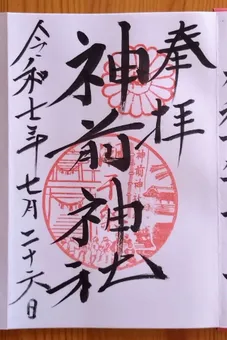 奉拝
神前神社
令和七年七月二十六日
神前神